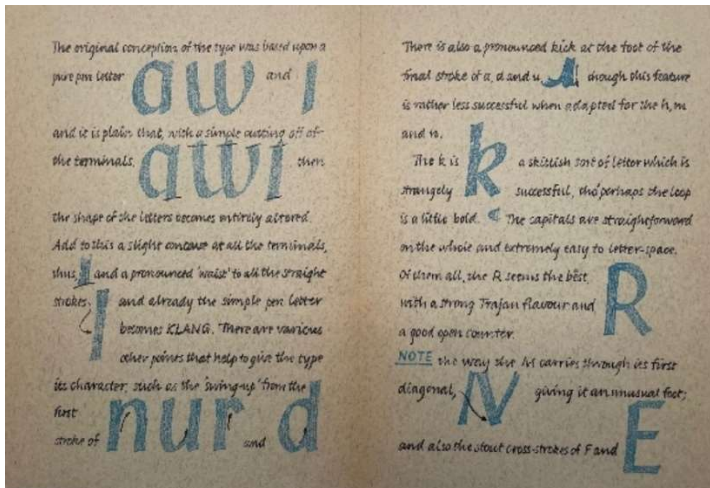 The original conception of the type was based upon a
pure pen letter aw and i
and it is plain that, with a simple cutting off of
the terminals, awi then
the shape of the letters becomes entirely altered.
Add to this a slight concave at all the terminals,
thus and a pronounced 'waist' to all the straight
strokes, and already the simple pen letter
becomes KLANG. There are various
other points that help to give the type
its character, such as the 'swing-up' from the
first
stroke of nur and d
There is also a pronounced kick at the foot of the
final stroke of a, d and u, though this feature
is rather less successful when adapted for the h, m
and n.
The k is k a skittish sort of letter which is
strangely successful, tho' perhaps the loop
is a little bold. The capitals are straightforward
on the whole and extremely easy to letter-space.
Of them all, the R seems the best,
with a strong Trajan flavour and R
a good open counter.
NOTE the way the N carries through its first
diagonal, N giving it an unusual foot;
and also the stout cross-strokes of F and E